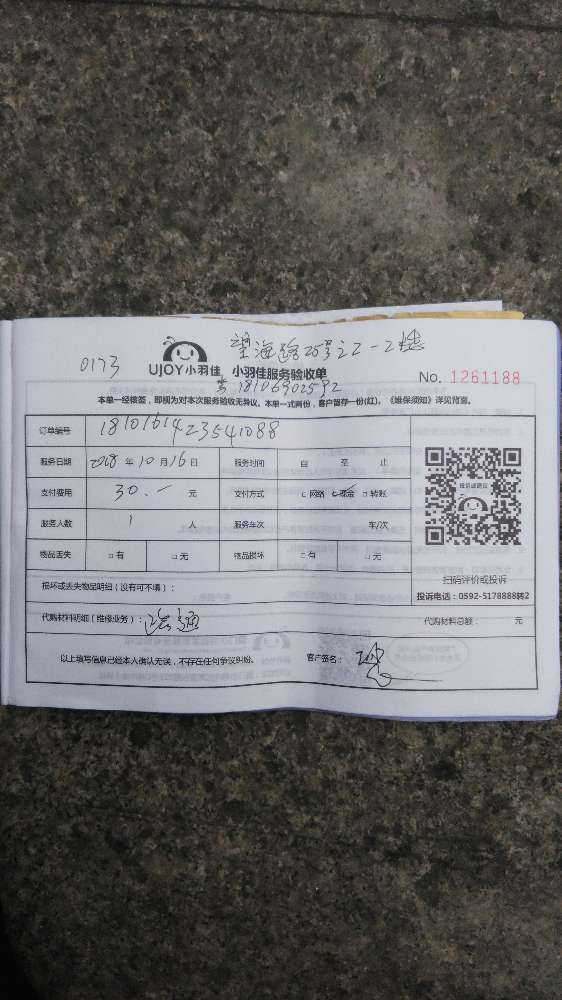 望海路25号之二一2楼
0173
UJOY小羽佳 小羽佳服务验收单
18106902592
No. 1261188
本单一经核签，即视为对本次服务验收无异议。本单一式两份，客户留存一份(红)。《维保须知》详见背面。
订单编号 1810161423541088
服务日期 2018年10月16日 服务时间 自 至 止
支付费用 30.— 元 支付方式 □网络 □现金 □转账
服务人数 1 人 服务车次 车/次
物品丢失 □有 □无 物品损坏 □有 □无
扫码评价或投诉
投诉电话：0592-5178888转2
损坏或丢失物品明细（没有可不填）：
代购材料明细（维修业务）： 代购材料总额： 元
以上填写信息已经本人确认无误，不存在任何争议纠纷。 客户签名：